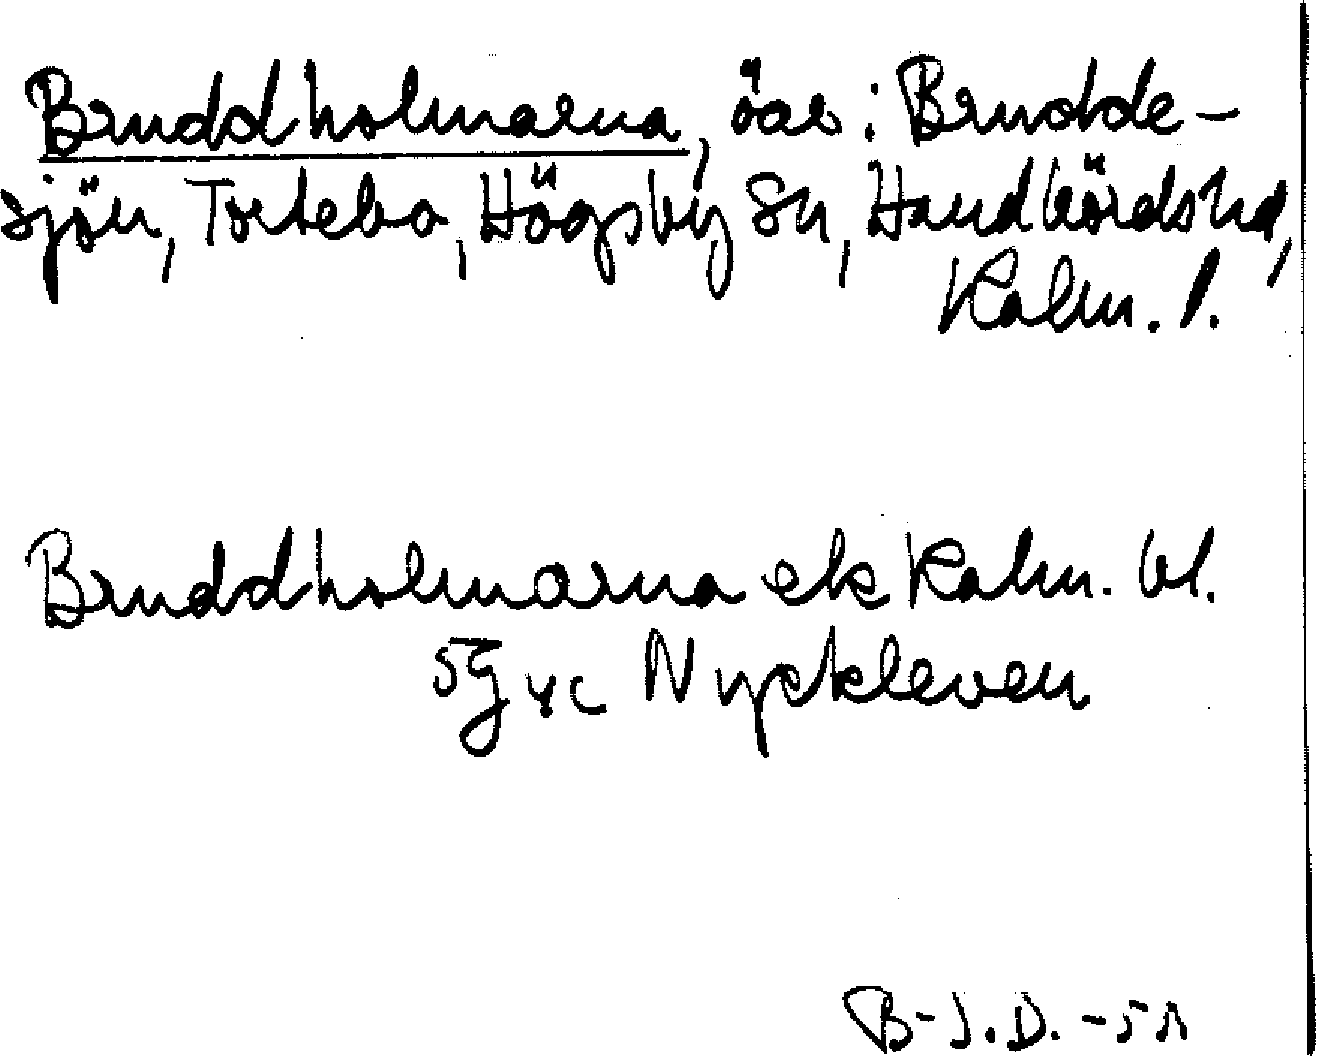 Bruddholmarna, öar i Brudde-
sjön, Torlebo, Högsby sn, Handbörds hd,
Kalm. l.
Bruddholmarna ek Kalm. bl.
5g4c Nyckleven
B-I.D. -51